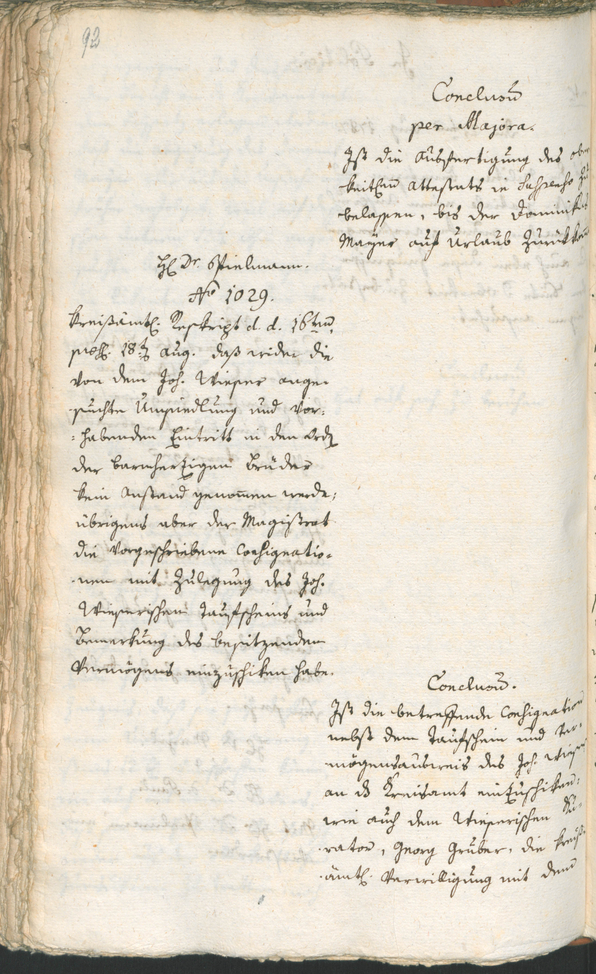 92
Conclusũ
per Majora.
Ist die Ausfertigung des
Attestats in zu
belassen, bis der Dominikus
Mayr auf Urlaub zurück
H: Dr. Spielmann.
No 1029.
Kreisämtl. Reskript d. d. 16ten
18t Aug. daß wider die
von dem Joh. Wieser ange-
suchte Umsiedlung und vor-
habenden Eintritt in den Ordẽ
der barmherzigen Brüder
kein Anstand genom̅en werde;
übrigens aber der Magistrat
die vorgeschriebene Consignatio-
nen mit Zulegung des Joh.
Wieserischen Taufscheins und
Bemerkung des besitzenden
Vermögens einzuschiken habe.
Conclusũ.
Ist die betreffende Consignation
nebst dem Taufschein und Ver-
mögensausweis des Joh. Wieser
an ds Kreisamt einzuschiken:
wie auch dem Wieserischen Ku-
rator, Georg Gruber, die kreis-
ämtl. Verwilligung mit dem